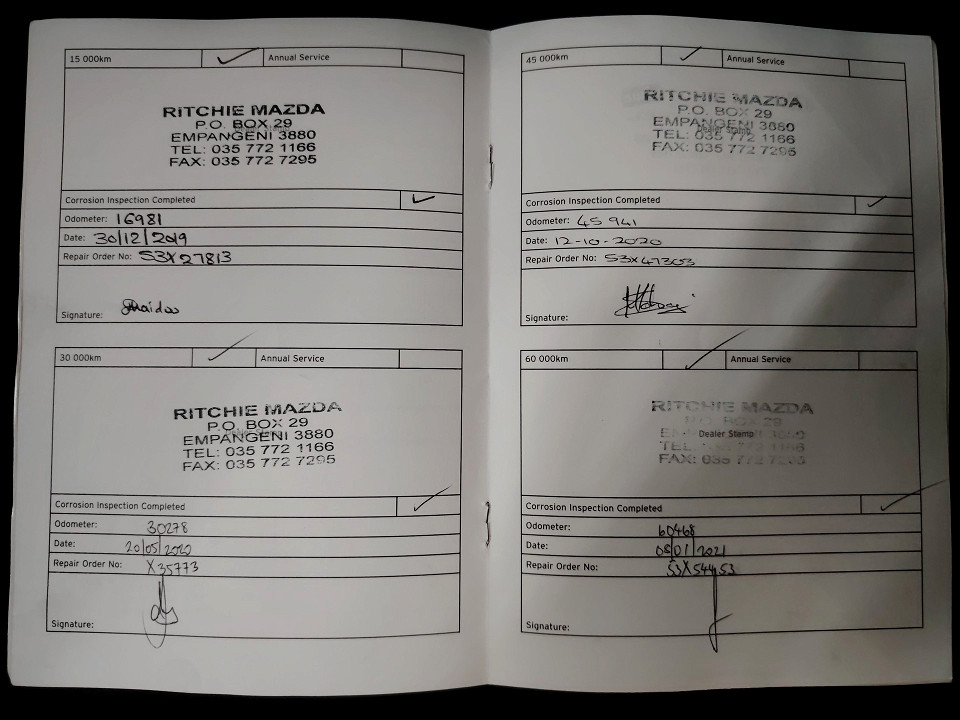 15 000km Annual Service
RITCHIE MAZDA
P.O. BOX 29
EMPANGENI 3880
TEL: 035 772 1166
FAX: 035 772 7295
Corrosion Inspection Completed
Odometer: 16981
Date: 30/12/2019
Repair Order No: S3X27813
Signature:
30 000km Annual Service
RITCHIE MAZDA
P.O. BOX 29
Dealer Stamp
EMPANGENI 3880
TEL: 035 772 1166
FAX: 035 772 7295
Corrosion Inspection Completed
Odometer: 30278
Date: 20/05/2020
Repair Order No: X35773
Signature:
45 000km Annual Service
RITCHIE MAZDA
P.O. BOX 29
EMPANGENI 3880
Dealer Stamp
TEL: 035 772 1166
FAX: 035 772 7295
Corrosion Inspection Completed
Odometer: 45 941
Date: 12-10-2020
Repair Order No: S3X47303
Signature:
60 000km Annual Service
RITCHIE MAZDA
P.O. BOX 29
Dealer Stamp
TEL:
FAX: 035 772
Corrosion Inspection Completed
Odometer: 60468
Date: 08/01/2021
Repair Order No: S3X54453
Signature: